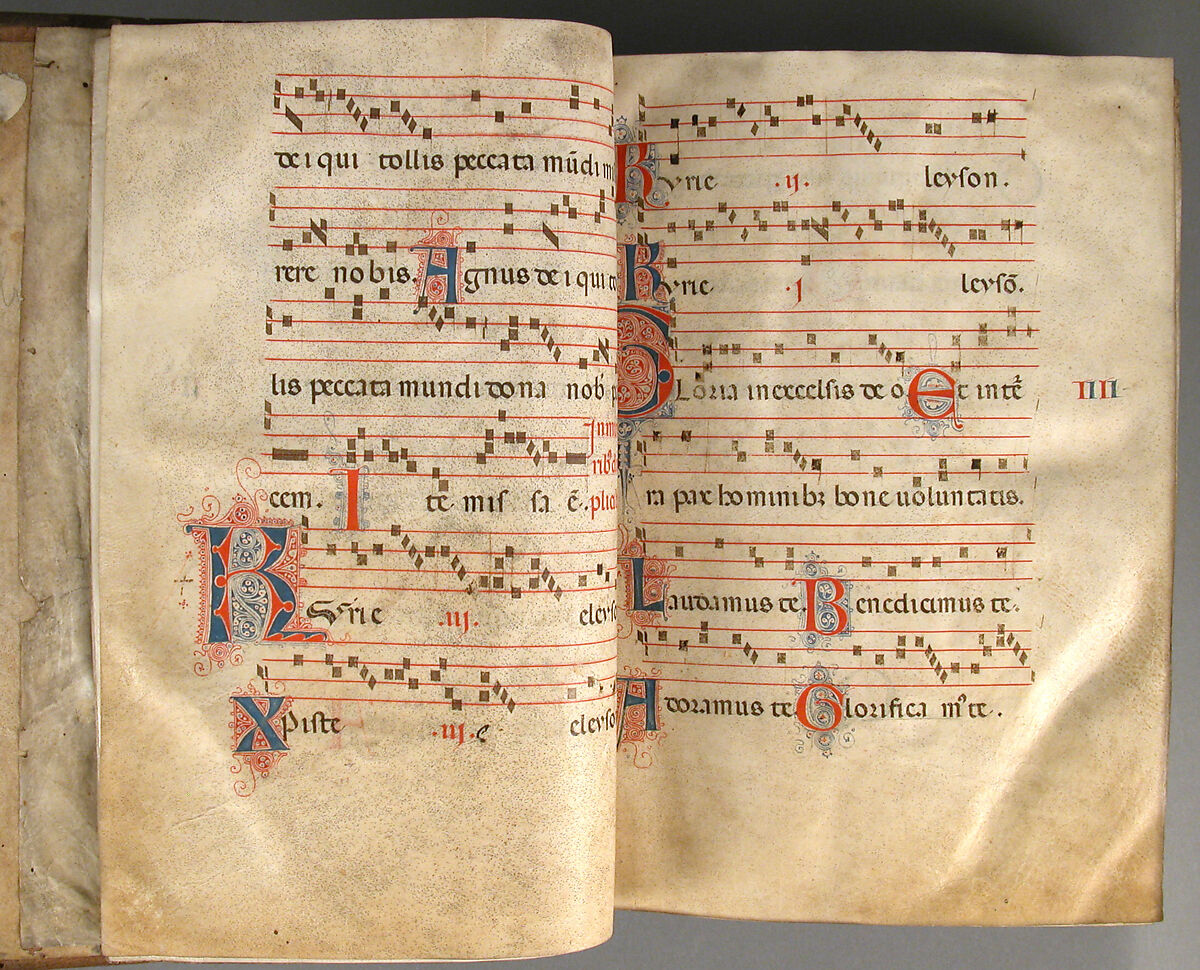 dei qui tollis peccata mūdi
rere nobis. Agnus dei qui
lis peccata mundi dona nob
cem. Ite missa ē.
Kyrie .iij. eleyſo
Xpiste .iij. e eleyſo
Kyrie .ij. leyson.
Kyrie .j leyſō.
Gloria in excelsis deo Et in
IIII
ra pax hominibꝫ bone uoluntatis.
Laudamus te. Benedicimus te.
Adoramus te Glorificamꝰ te.